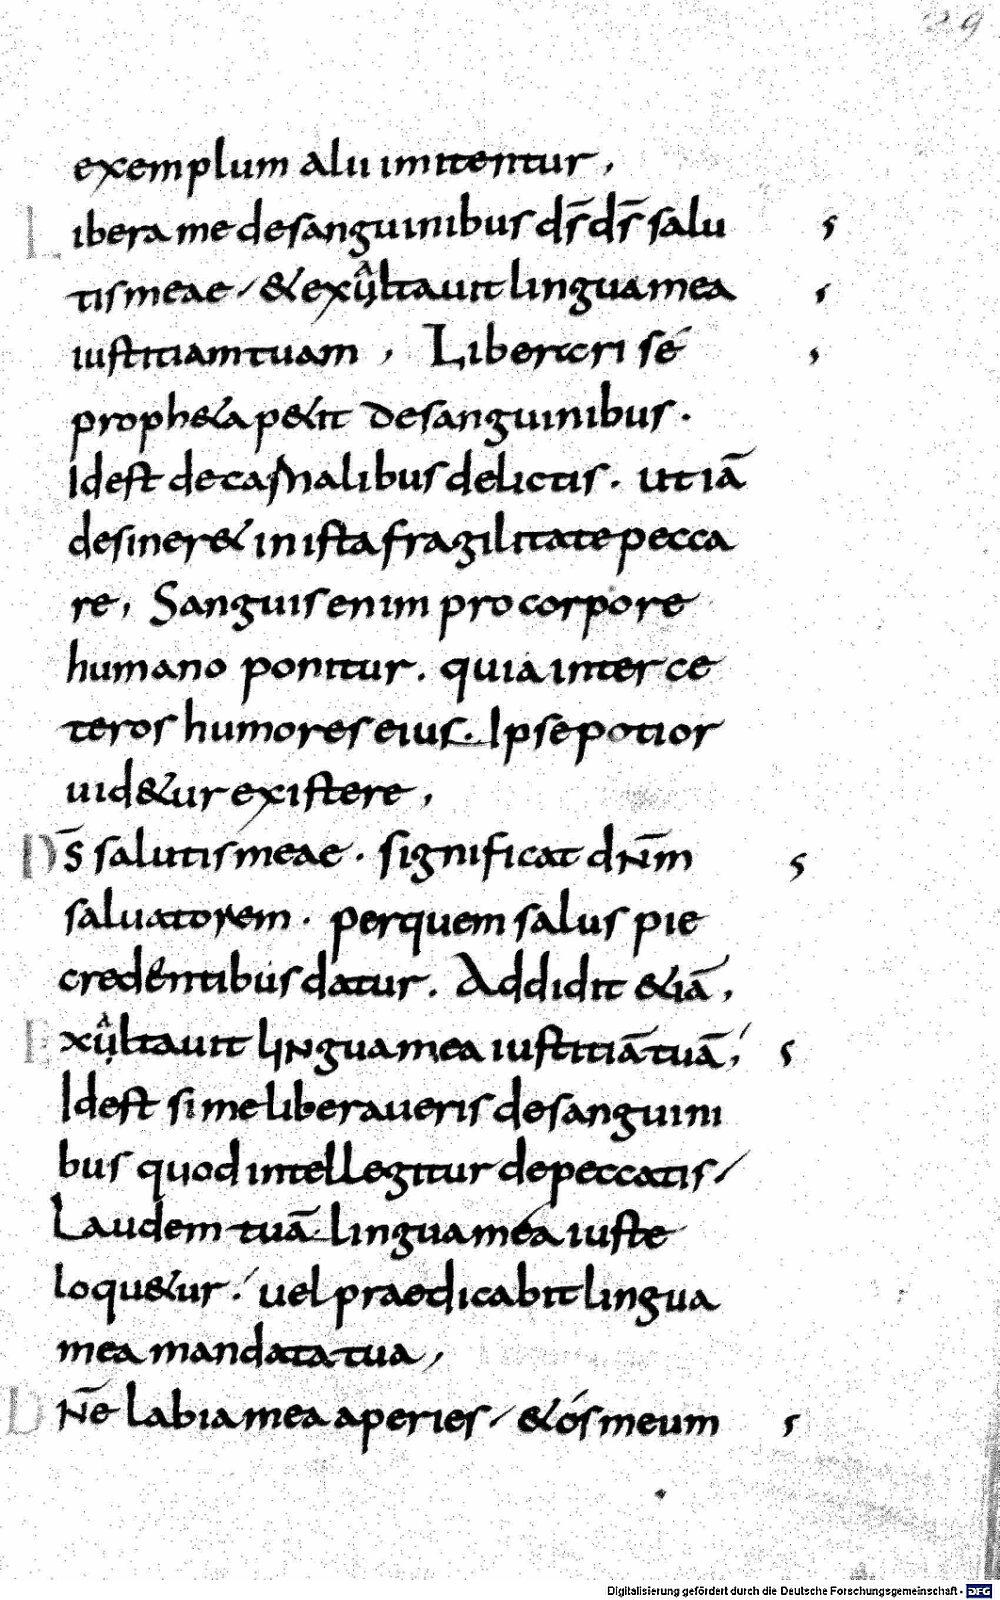 29
exemplum alii imitentur,
Libera me de sanguinibus d̄s d̄s salu
tis meae / & exultauit lingua mea
iustitiam tuam , Libertcri sé
proph&a p&iit de sanguinibus .
Id est de carnalibus delictis . ut iā
desiner& in ista fragilitate pecca
re , Sanguis enim pro corpore
humano ponitur . quia inter ce
teros humores eius . Ipse potior
uid&ur existere ,
D̄s salutis meae . significat dn̄m
saluatorem . per quem salus pie
credentibus datur . Addidit &iā ,
Exultauit lingua mea iustitiā tuā ,
Id est si me liberaueris de sanguini
bus quod intellegitur de peccatis /
Laudem tuā . lingua mea iuste
loqu&ur . uel praedicabit lingua
mea mandata tua ,
Dn̄e labia mea aperies / & ós meum
Digitalisierung gefördert durch die Deutsche Forschungsgemeinschaft - DFG